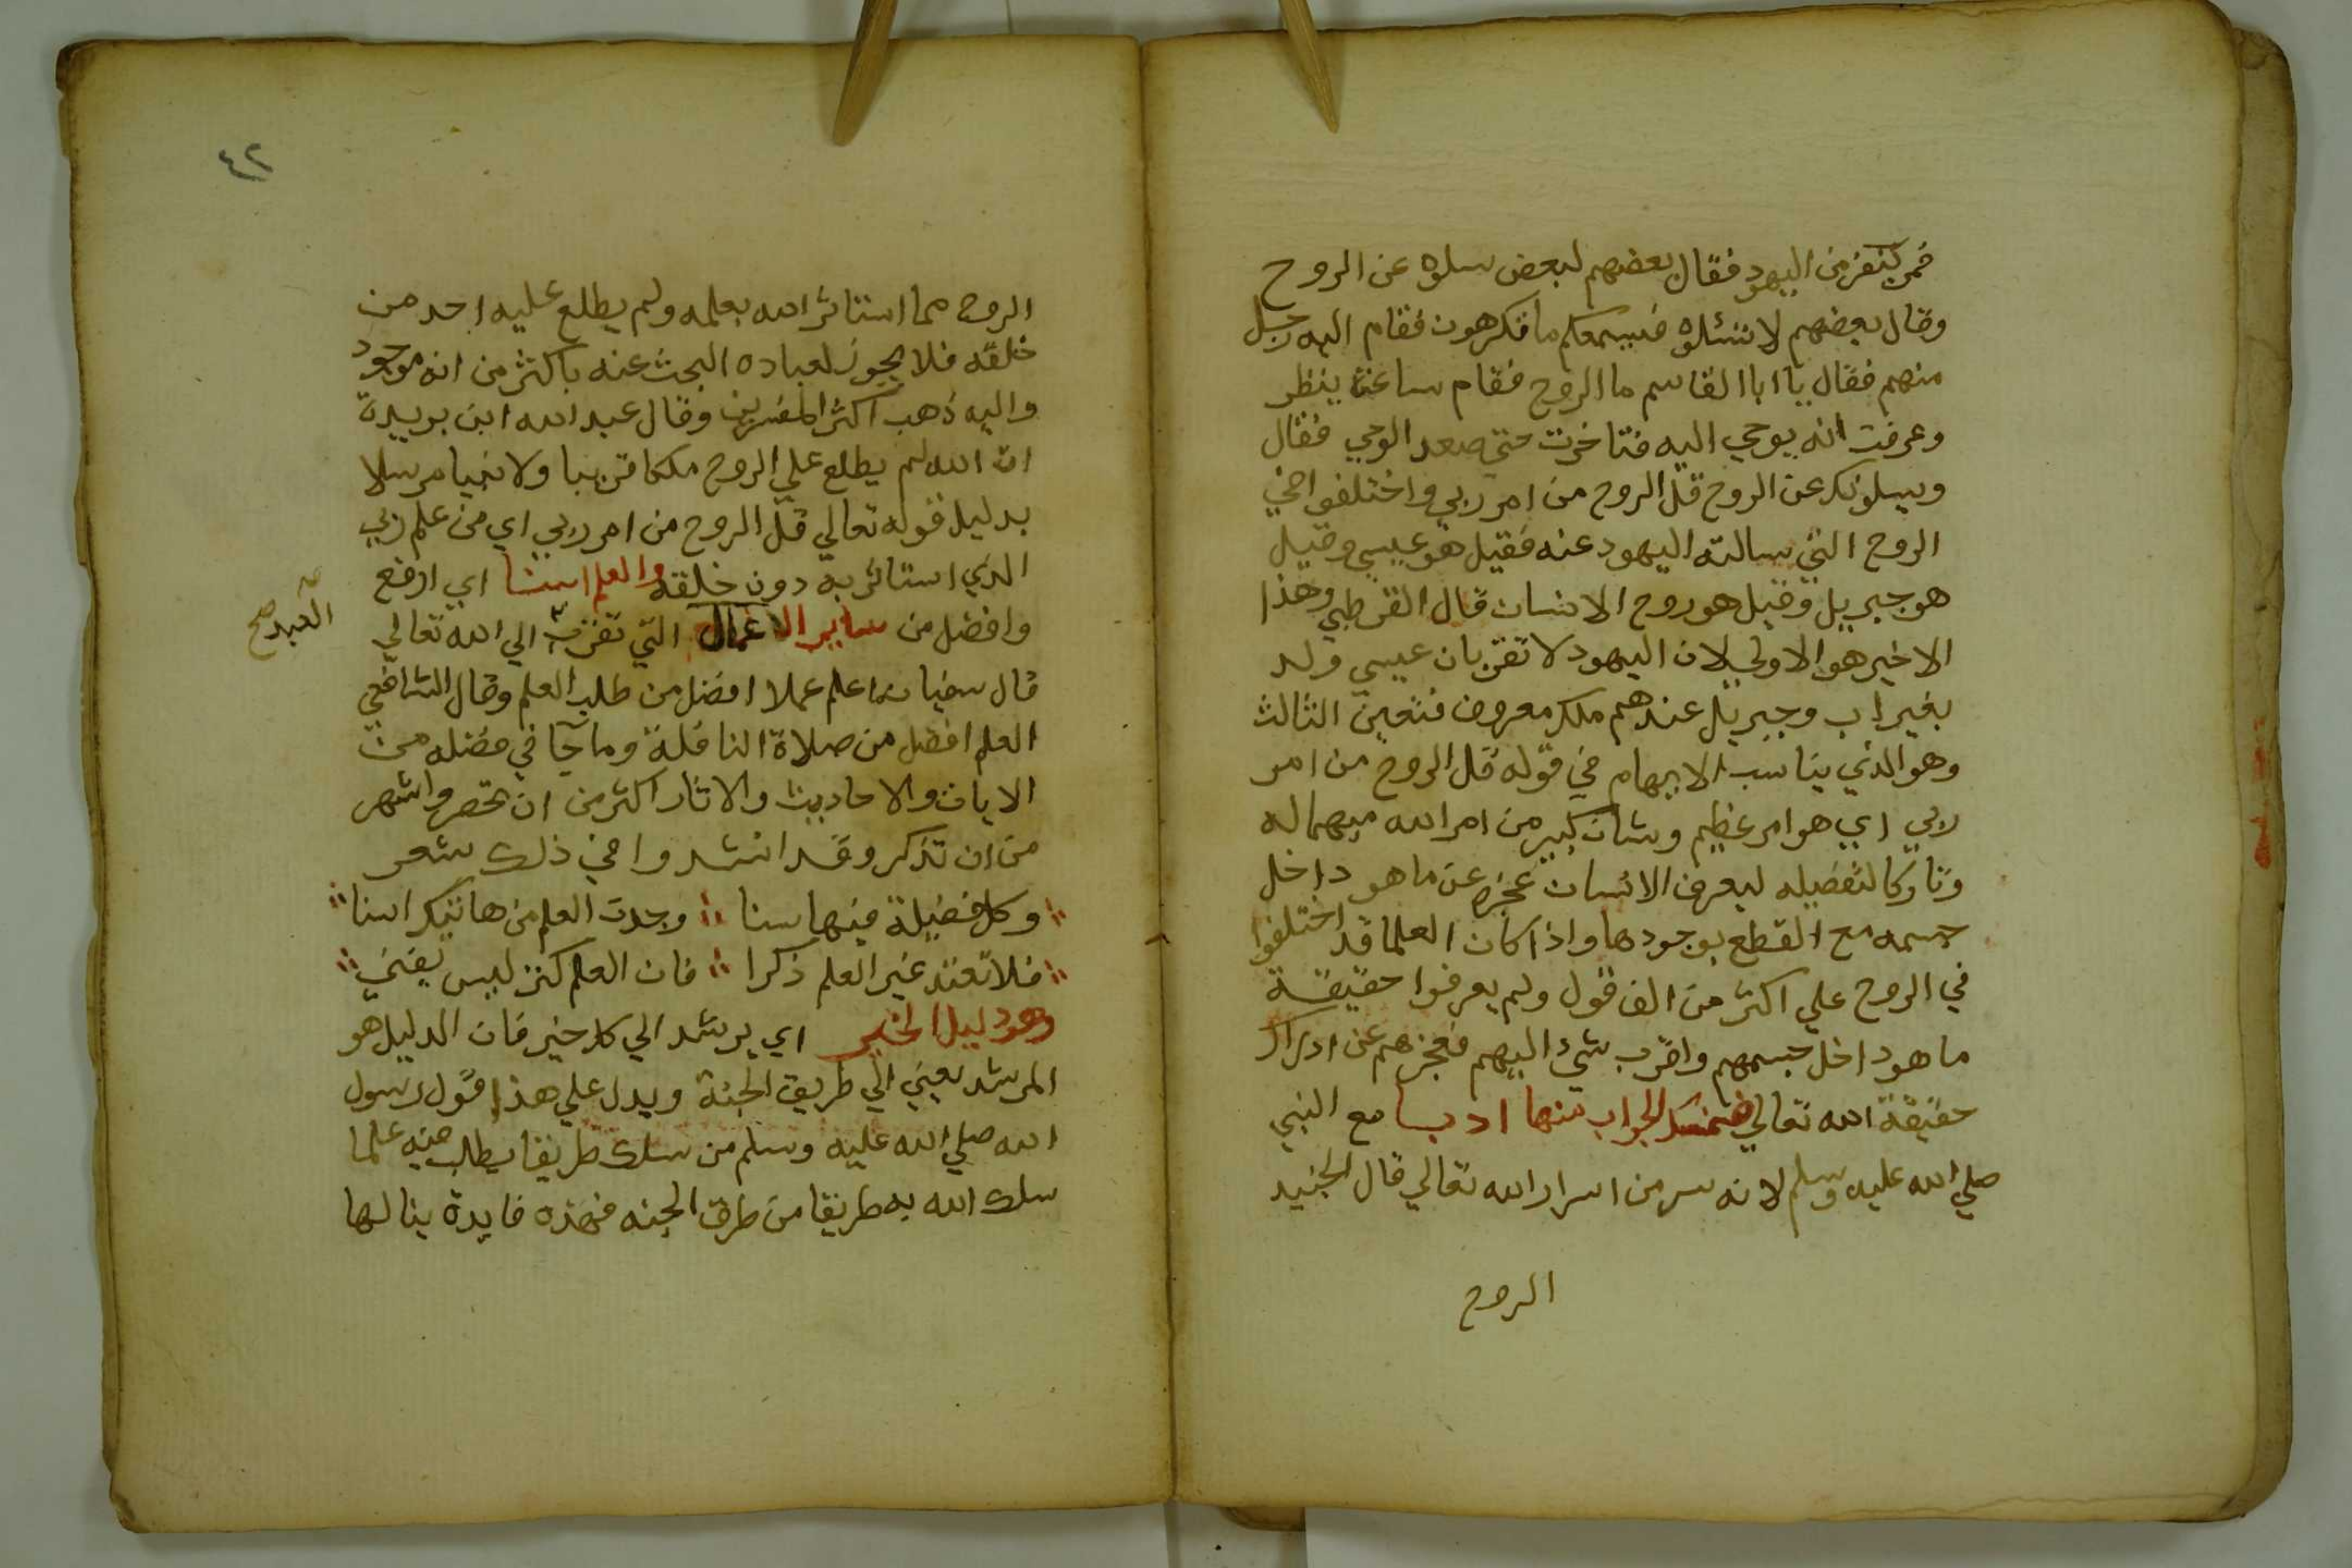 فمر بنفر من اليهود فقال بعضهم لبعض سلوه عن الروح
وقال بعضهم لا تسئلوه فيسمعكم ما تكرهون فقام اليه رجل
منهم فقال يا ابا القاسم ما الروح فقام ساعة ينظر
وعرفت انه يوحي اليه فتاخرت حتي صعد الوحي فقال
ويسلونك عن الروح قل الروح من امر ربي واختلفوا في
الروح التي سالته اليهود عنه فقيل هو عيسي وقيل
هو جبريل وقيل هو روح الانسان قال القرطبي وهذا
الاخير هو الاولي لان اليهود لا تقر بان عيسي ولد
بغير اب وجبريل عندهم ملك معروف فتعين الثالث
وهو الذي يناسب الابهام في قوله قل الروح من امر
ربي اي هو امر عظيم وشان كبير من امر الله مبهما له
وتاركا لتفضيله ليعرف الانسان عجزه عن ما هو داخل
جسمه مع القطع بوجودها واذا كان العلما قد اختلفوا
في الروح علي اكثر من الف قول ولم يعرفوا حقيقة
ما هو داخل جسمهم واقرب شئ اليهم فعجزهم عن ادراك
حقيقة الله تعالي فنمسك الجواب عنها ادبا مع النبي
صلي الله عليه وسلم لانه سر من اسرار الله تعالي قال الجنيد
الروح
٤٢
الروح مما استاثر الله بعلمه ولم يطلع عليه احد من
خلقه فلا يجوز لعباده البحث عنه باكثر من انه موجود
واليه ذهب اكثر المفسرين وقال عبد الله ابن بريدة
ان الله لم يطلع علي الروح ملكا قريبا ولا نبيا مرسلا
بدليل قوله تعالي قل الروح من امر ربي اي من علم ربي
الذي استاثر به دون خلقه والعلم اسنا اي ارفع
وافضل من ساير الاعمال التي تقرب الي الله تعالي
العبد صح
قال سفيان ما اعلم عملا افضل من طلب العلم وقال الشافعي
العلم افضل من صلاة النافلة وما جآ في فضله من
الايات والاحاديث والاثار اكثر من ان تحصر واشهر
من ان تذكر وقد انشدوا في ذلك شعر
وكل فضيلة فيها سنا وجدت العلم من هاتيك اسنا
فلا تعتد غير العلم ذكرا فان العلم كنز ليس يفني
وهو دليل الخير اي يرشد الي كل خير فان الدليل هو
المرشد يعني الي طريق الجنة ويدل علي هذا قول رسول
الله صلي الله عليه وسلم من سلك طريقا يطلب فيه علما
سلك الله به طريقا من طرق الجنه فهذه فايدة ينالها